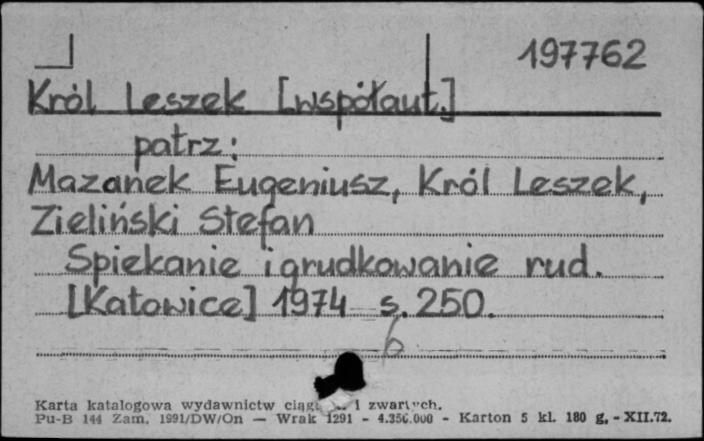 197762
Król Leszek [współaut.]
patrz:
Mazanek Eugeniusz, Król Leszek,
Zieliński Stefan
Spiekanie i grudkowanie rud.
[Katowice] 1974 s. 250.
6
Karta katalogowa wydawnictw i zwartych.
Pu-B 144 Zam. 1991/DW/On — Wrak 1291 - 4.350.000 - Karton 5 kl. 180 g. - XII.72.